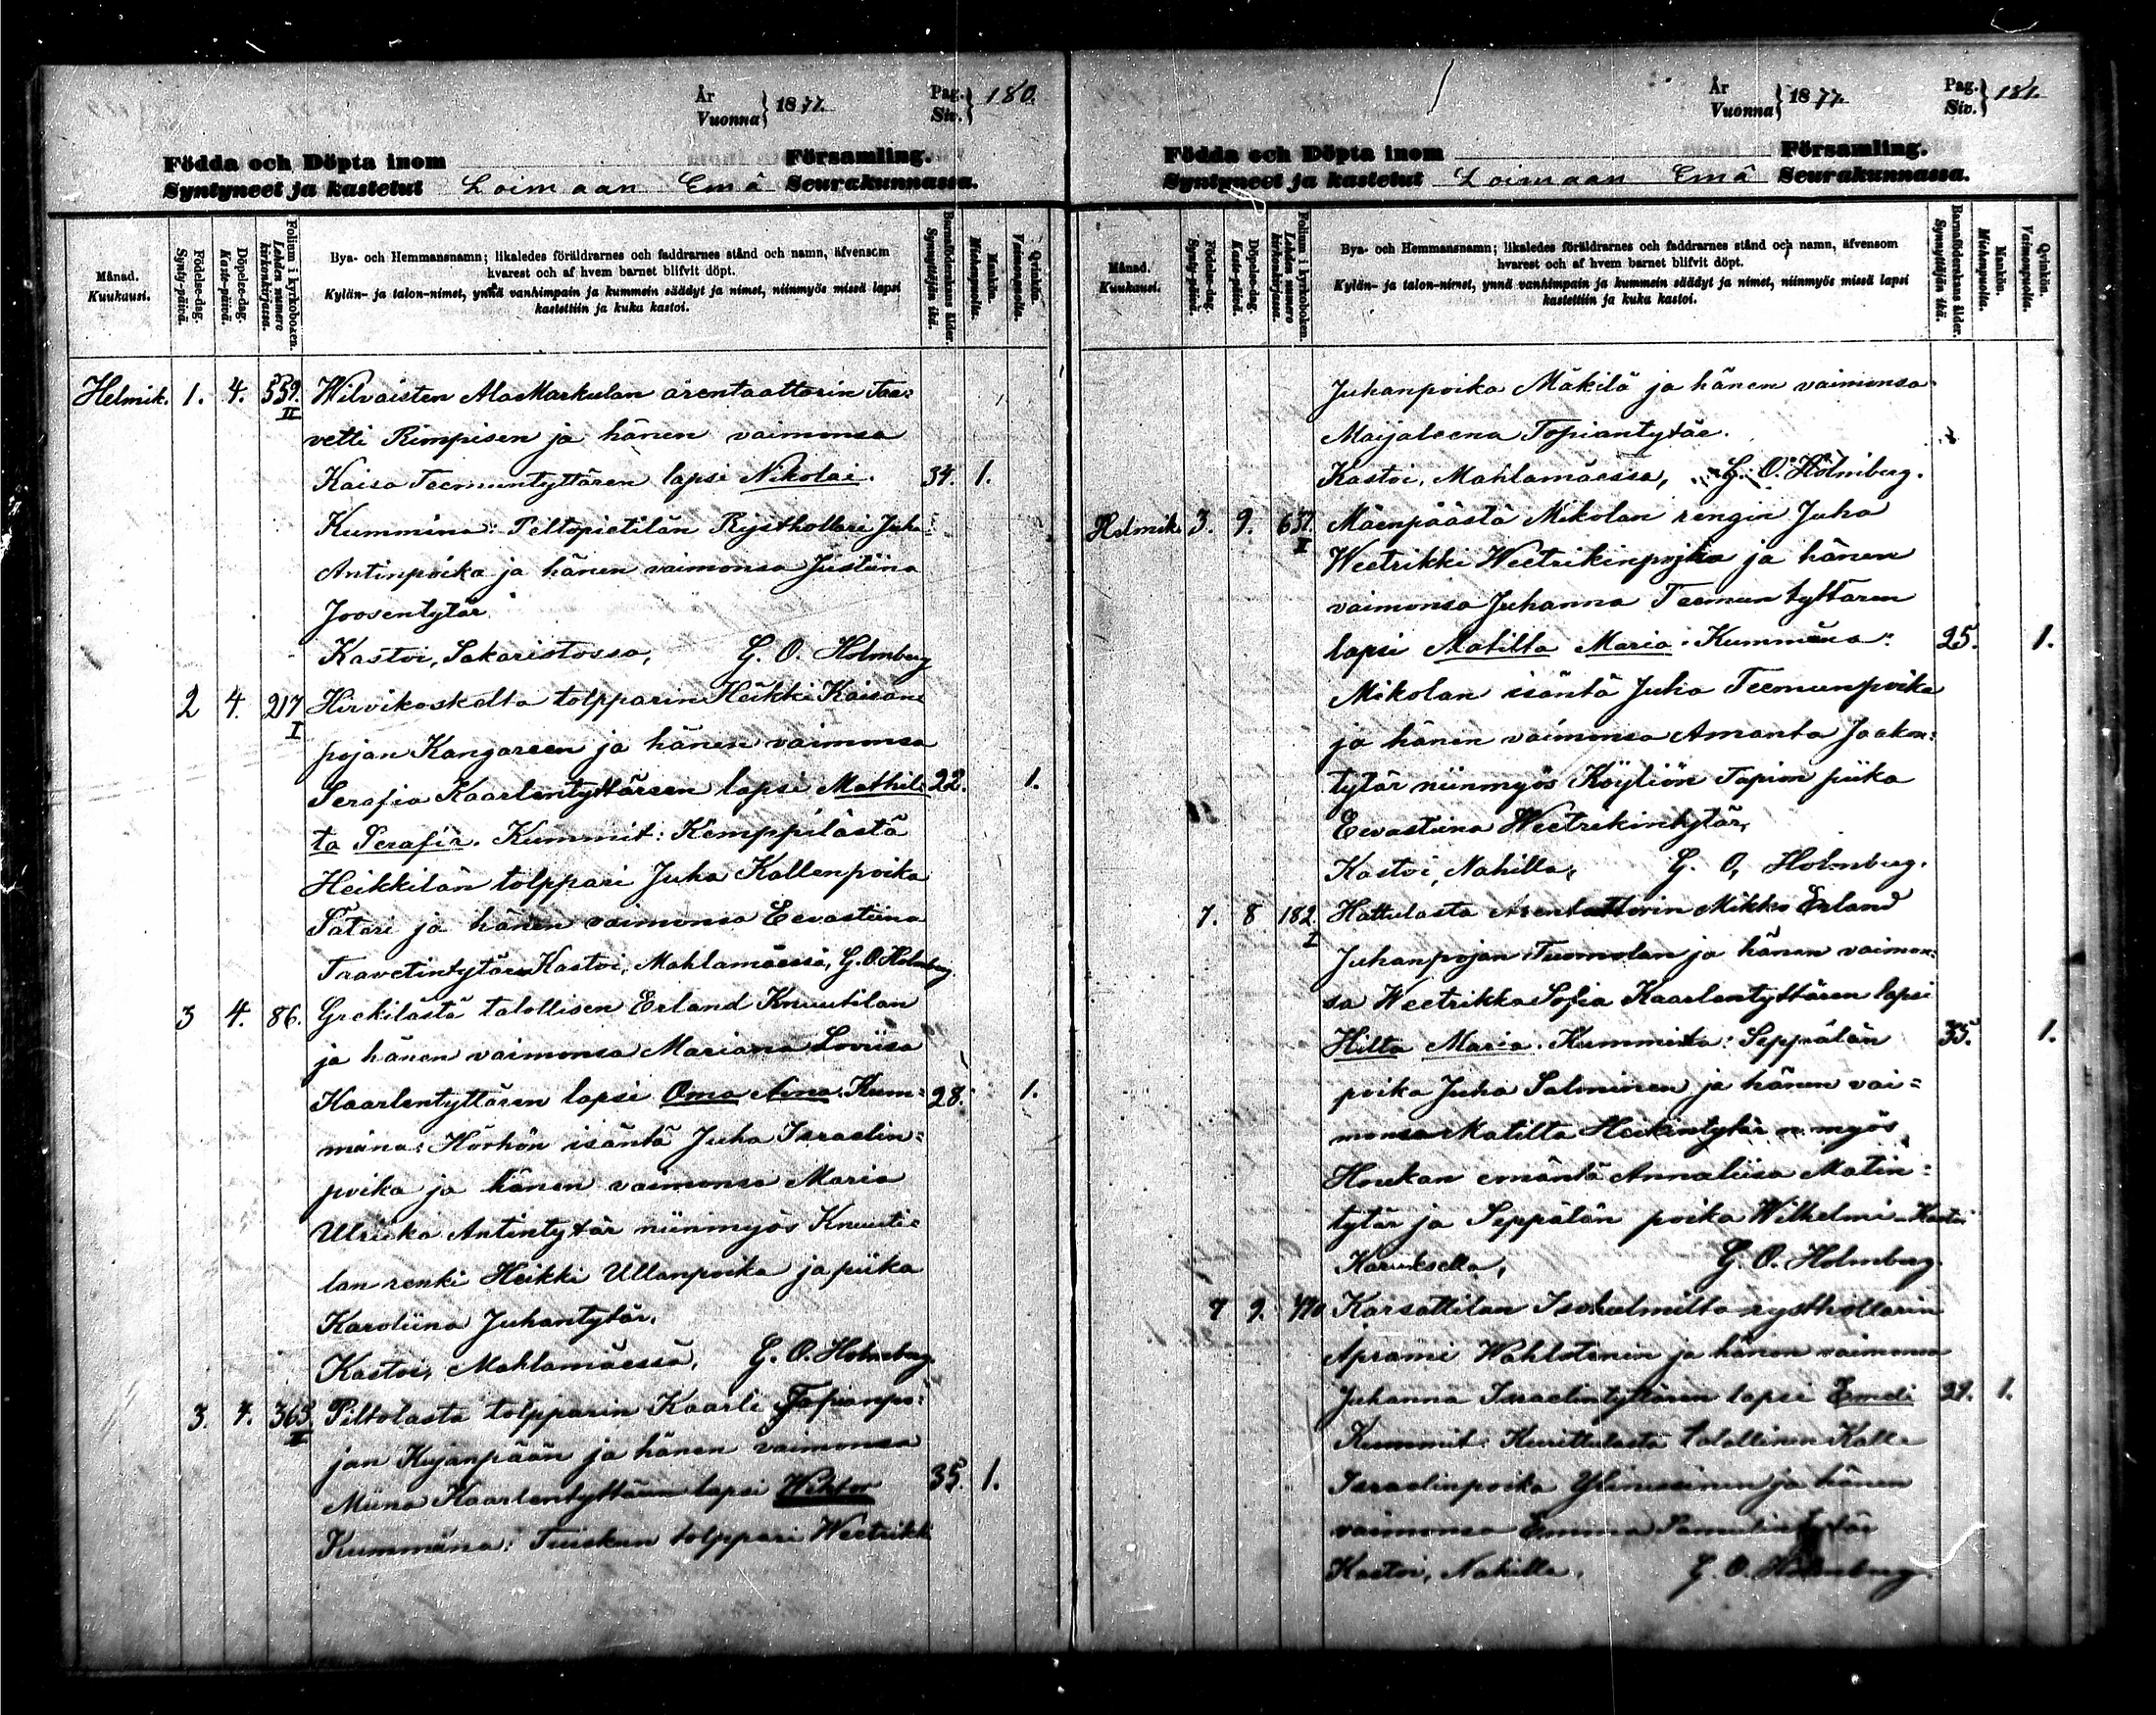 År
Vuonna } 1877.
Pag.
Siv. } 180.
Födda och Döpta inom Församling.
Syntyneet ja kastetut Loimaan Emä Seurakunnassa.
Månad. Kuukausi.
Födelse-dag. Synty-päivä.
Döpelse-dag. Kaste-päivä.
Folium i kyrkoboken. Lehden numero kirkonkirjassa.
Bya- och Hemmansnamn; likaledes föräldrarnes och faddrarnes stånd och namn, äfvensom
hvarest och af hvem barnet blifvit döpt.
Kylän- ja talon-nimet, ynnä vanhimpain ja kummein säädyt ja nimet, niinmyös missä lapsi
kastettiin ja kuka kastoi.
Barnaföderskans ålder. Synnyttäjän ikä.
Mankön. Miehenpuolia.
Qvinkön. Vaimonpuolia.
Helmik. 1. 4. 559. II Wilvaisten AlaMarkulan arentaattorin Taa:
vetti Rimpisen ja hänen vaimonsa
Kaisa Teemuntyttären lapsi Nikolai. 34. 1.
Kummina: Peltopietilän Rysthollari Juha
Antinpoika ja hänen vaimonsa Justiina
Joosentytär
Kastoi, Sakaristossa, G. O. Holmberg
2 4. 217 I Hirvikoskelta tolpparin Heikki Kaisan:
pojan Kangareen ja hänen vaimonsa
Serafia Kaarlentyttäreen lapsi Mathil: 22. 1.
ta Serafia. Kummit: Kemppilästä
Heikkilän tolppari Juha Kallenpoika
Satari ja hänen vaimonsa Eevastiina
Taavetintytär Kastoi, Mahlamäessä, G. O. Holmberg
3 4. 86. Grekilästä talollisen Erland Knuutilan
ja hänen vaimonsa Mariana Loviisa
Kaarlentyttären lapsi Oma Aina. Kum= 28. 1.
mina: Hörhön isäntä Juha Israelin=
poika ja hänen vaimonsa Maria
Ulriika Antintytär niinmyös Knuuti=
lan renki Heikki Ullanpoika ja piika
Karoliina Juhantytär.
Kastoi, Mahlamäessä, G. O. Holmberg.
3. 4. 365. II Piltolasta tolpparin Kaarli Tapianpo=
jan Kujanpään ja hänen vaimonsa
Miina Kaarlentyttären lapsi Wihtor 35. 1.
Kummina: Tuiskun tolppari Weetrikki
År
Vuonna } 1877.
Pag.
Siv. } 181.
Födda och Döpta inom Församling.
Syntyneet ja kastetut Loimaan Emä Seurakunnassa.
Månad. Kuukausi.
Födelse-dag. Synty-päivä.
Döpelse-dag. Kaste-päivä.
Folium i kyrkoboken. Lehden numero kirkonkirjassa.
Bya- och Hemmansnamn; likaledes föräldrarnes och faddrarnes stånd och namn, äfvensom
hvarest och af hvem barnet blifvit döpt.
Kylän- ja talon-nimet, ynnä vanhimpain ja kummein säädyt ja nimet, niinmyös missä lapsi
kastettiin ja kuka kastoi.
Barnaföderskans ålder. Synnyttäjän ikä.
Mankön. Miehenpuolia.
Qvinkön. Vaimonpuolia.
Juhanpoika Mäkilä ja hänen vaimonsa
Maijaleena Topiantytär.
Kastoi, Mahlamäessä, G. O. Holmberg.
Helmik. 3. 9. 637. I Mäenpäästä Mikolan rengin Juha
Weetrikki Weetrikinpojka ja hänen
vaimonsa Juhanna Teemuntyttären
lapsi Matilta Maria. Kummina: 25. 1.
Mikolan isäntä Juha Teemunpoika
ja hänen vaimonsa Amanta Jaakon:
tytär niinmyös Köyliön Tapion piika
Eevastiina Weetrekintytär,
Kastoi, Nahilla, G. O. Holmberg.
7. 8 182 I Hattulasta Arentattorin Mikko Erland
Juhanpojan Tuomolan ja hänen vaimon:
sa Weetrikka Sofia Kaarlentyttären lapsi
Hilta Maria. Kummista: Seppälän 35. 1.
poika Juha Salminen ja hänen vai=
monsa Matilta Heikintytär n. myös
Houkan emäntä Annaliisa Matin=
tytär ja Seppälän poika Wilhelmi. Kastoi
G. O. Holmberg.
7 9. Karsattilan rysthollarin
Aprami Wahlstenin ja hänen vaimonsa
Juhanna Israelintyttären lapsi Emeli 29. 1.
Kummit: Kurittulasta talollinen Kalle
Israelinpoika ja hänen
vaimonsa Emma
Kastoi, Nahilla, G. O. Holmberg.